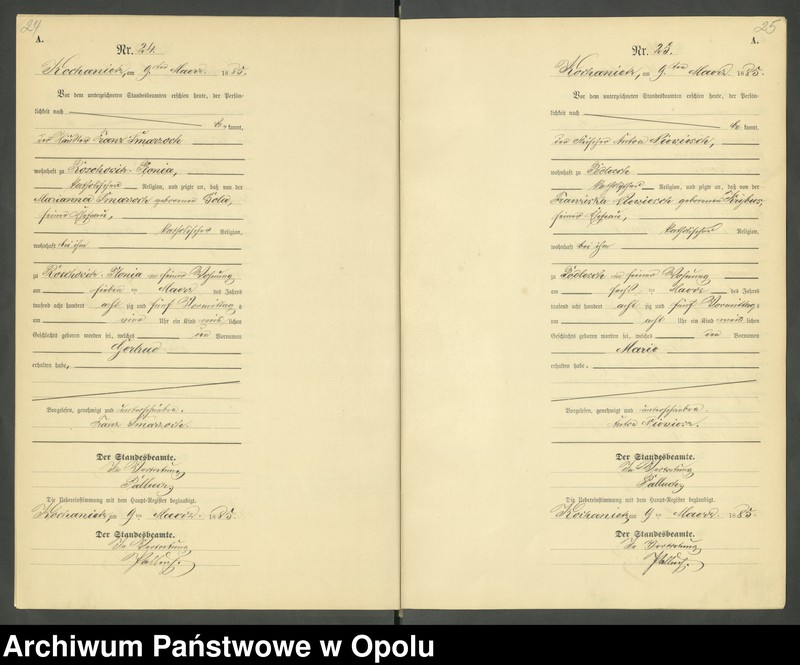 24
A.
Nr. 24.
Kochanietz, am 9ten Maerz 1885.
Vor dem unterzeichneten Standesbeamten erschien heute, der Persön-
lichkeit nach
be kannt,
der Häusler Franz
wohnhaft zu
katholischer Religion, und zeigte an, daß von der
Marianna geborenen
seiner Ehefrau,
katholischer Religion,
wohnhaft bei ihm
zu in seiner Wohnung
am sieben ten Maerz des Jahres
tausend acht hundert acht zig und fünf Vormittag s
um Uhr ein Kind weib lichen
Geschlechts geboren worden sei, welches den Vornamen
Gertrud
erhalten habe,
Vorgelesen, genehmigt und unterschrieben.
Franz
Der Standesbeamte.
In Vertretung
Die Uebereinstimmung mit dem Haupt-Register beglaubigt.
Kochanietz, am 9 ten Maerz 1885.
Der Standesbeamte.
In Vertretung
25
A.
Nr. 25.
Kochanietz, am 9ten Maerz 1885.
Vor dem unterzeichneten Standesbeamten erschien heute, der Persön-
lichkeit nach
be kannt,
der Anton
wohnhaft zu
katholischer Religion, und zeigte an, daß von der
Franziska geborenen
seiner Ehefrau,
katholischer Religion,
wohnhaft bei ihm
zu in seiner Wohnung
am sechs ten Maerz des Jahres
tausend acht hundert acht zig und fünf Vormittag s
um acht Uhr ein Kind weib lichen
Geschlechts geboren worden sei, welches den Vornamen
Marie
erhalten habe.
Vorgelesen, genehmigt und unterschrieben.
Anton
Der Standesbeamte.
In Vertretung
Die Uebereinstimmung mit dem Haupt-Register beglaubigt.
Kochanietz, am 9 ten Maerz 1885.
Der Standesbeamte.
In Vertretung
Archiwum Państwowe w Opolu